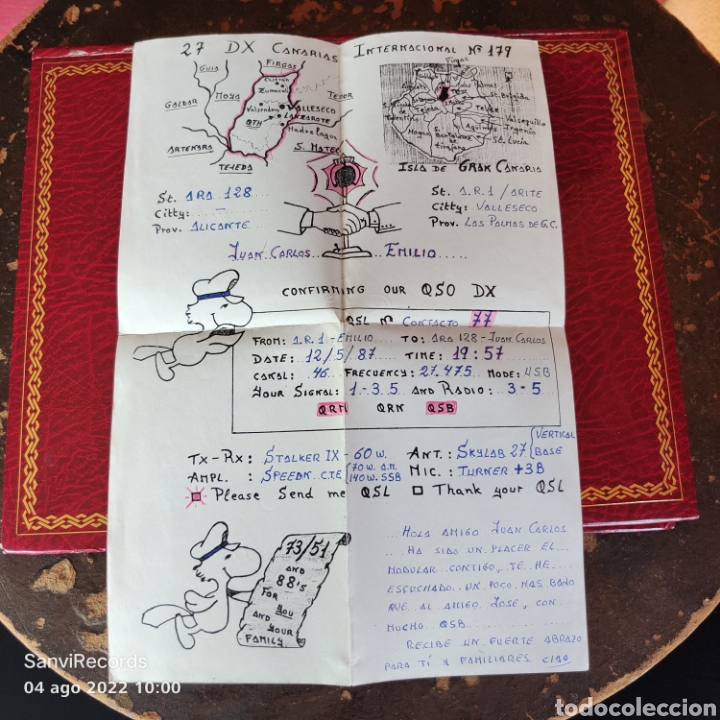 27 DX CANARIAS INTERNACIONAL Nº 179
GUIA
FIRGAS
MOYA
GALDAR
TEROR
VALLESECO
LANZAROTE
QTH
MADRELAGUA
S. MATEO
ARTENARA
TEJEDA
FIRGAS
ST. BRIGIDA
TELDE
VALSEQUILLO
INGENIO
AGUIMES
ST. LUCIA
MOGAN
ISLA DE GRAN CANARIA
ST. ARA 128
CITTY: -
PROV. ALICANTE
ST. A.R.1 / ARITE
CITTY: VALLESECO
PROV. LAS PALMAS DE G.C.
JUAN CARLOS EMILIO
CONFIRMING OUR QSO DX
QSL Nº CONTACTO 77
FROM: A.R.1-EMILIO TO: ARA 128-JUAN CARLOS
DATE: 12/5/87 TIME: 19:57
CANAL: 46 FRECUENCY: 27.475 MODE: USB
YOUR SIGNAL: 1-3.5 AND RADIO: 3-5
QRM QRN QSB
TX-RX: STALKER IX-60 W. ANT.: SKYLAB 27 VERTICAL BASE
AMPL. SPEEDY. C.T.E 70 W. A.M. 140 W. SSB MIC.: TURNER +3B
PLEASE SEND ME QSL THANK YOUR QSL
73/51
AND
88'S
FOR
YOU
AND YOUR
FAMILY
HOLA AMIGO JUAN CARLOS
HA SIDO UN PLACER EL
MODULAR CONTIGO, TE HE
ESCUCHADO UN POCO MAS BAJO
QUE AL AMIGO JOSE, CON
MUCHO QSB
RECIBE UN FUERTE ABRAZO
PARA TI Y FAMILIARES CIAO
SanviRecords
04 ago 2022 10:00
todocoleccion